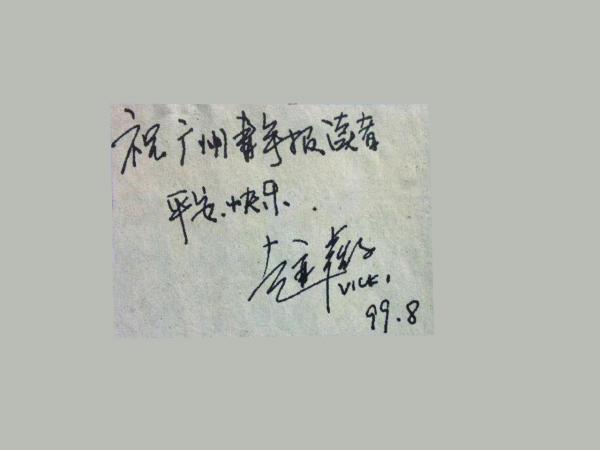 祝广州青年报读者
平安.快乐.
赵薇
VICKI
99.8